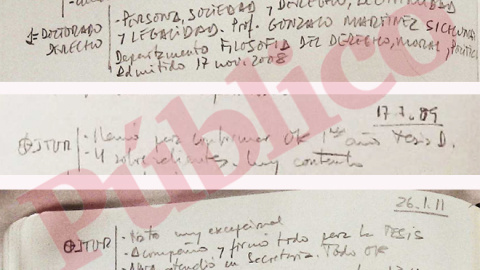 - PERSONA, SOCIEDAD Y DERECHO,
1º DOCTORADO Y LEGALIDAD. Prof. GONZALO MARTINEZ SICHUNA
DERECHO Departamento FILOSOFIA DEL DERECHO, MORAL, POLITICA
Admitido 17 nov. 2008
Público
17.7.09
JTUR - Llamo para confirmar OK 1er año Tesis D.
- 4 sobresalientes. Muy contento
26.1.11
JTUR - Nota muy excepcional
- Acompaño y firmo todo para la TESIS
en Secretaria. Todo OK